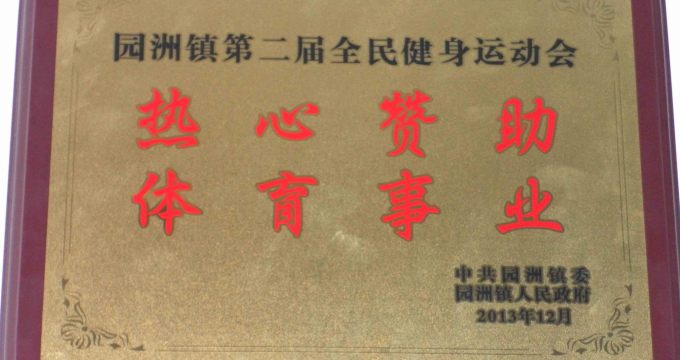 园洲镇第二届全民健身运动会
热心赞助
体育事业
中共园洲镇委
园洲镇人民政府
2013年12月